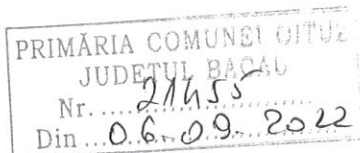 PRIMĂRIA COMUNEI OITUZ
JUDEŢUL BACĂU
Nr. 21455
Din 06.09.2022